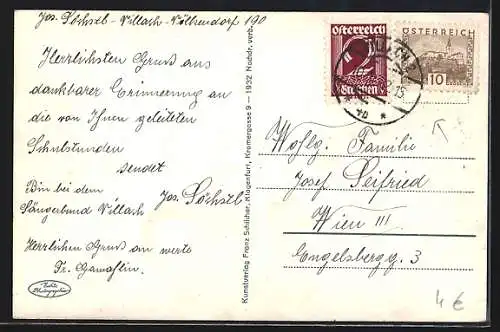 Jos. Söchstl - Villach - Völkendorf 190
Herrlichsten Gruss aus
dankbarer Erinnerung an
die von Ihnen geleiteten
Schulstunden
sendet
Jos. Söchstl
Bin bei dem
Sängerbund Villach
Herzlichen Gruss an werte
Fr.
Kunstverlag Franz Schilcher, Klagenfurt, Kramergasse 9 — 1932 Nachdr. verb.
Österreich
2
Groschen
VILLACH
15
ÖSTERREICH
10
Wohlg. Familie
Josef Seifried
Wien III
Engelsbergg. 3
4 €